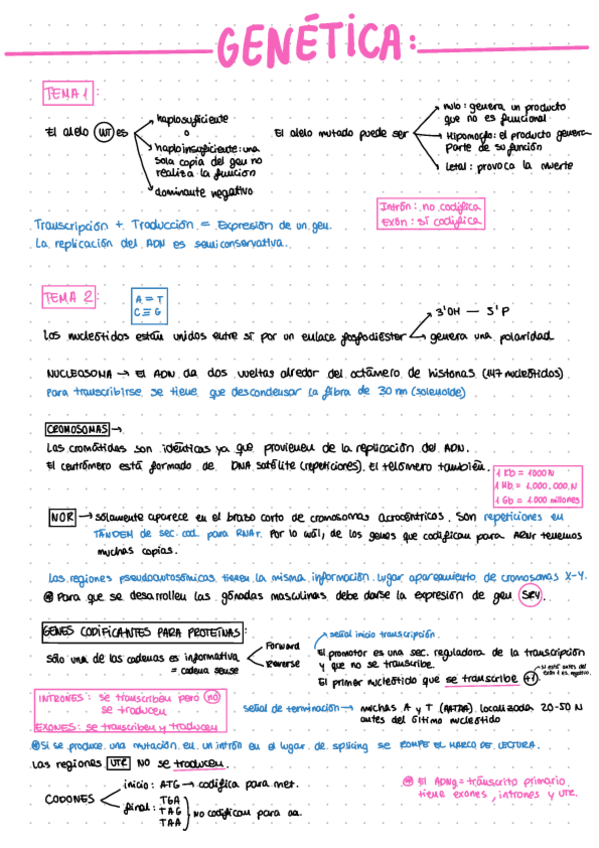 GENÉTICA:
TEMA 1:
El alelo WT es
haplosuficiente
o
haploinsuficiente: una
sola copia del gen no
realiza la función
dominante negativo
El alelo mutado puede ser
nulo: genera un producto
que no es funcional
Hipomorfo: el producto genera
parte de su función
Letal: provoca la muerte
Intrón: no codifica
exón: sí codifica
Transcripción + Traducción = Expresión de un gen.
La replicación del ADN es semiconservativa.
TEMA 2:
A = T
C ≡ G
Los nucleótidos están unidos entre sí por un enlace fosfodiéster
3'OH — 5'P
genera una polaridad
NUCLEOSOMA → El ADN da dos vueltas alredor del octámero de histonas (147 nucleótidos)
Para transcribirse se tiene que descondensar la fibra de 30 nm (solenoide)
CROMOSOMAS →
Las cromátidas son idénticas ya que provienen de la replicación del ADN.
El centrómero está formado de DNA satélite (repeticiones). El telómero también.
1 Kb = 1000 N
1 Mb = 1.000.000 N
1 Gb = 1.000 millones
NOR → sólamente aparece en el brazo corto de cromosomas acrocéntricos. Son repeticiones en
TÁNDEM de sec. cod. para RNAr. Por lo cuál, de los genes que codifican para ARNr tenemos
muchas copias.
Las regiones pseudoautosómicas tienen la misma información. Lugar apareamiento de cromosomas X-Y.
Para que se desarrollen las gónadas masculinas debe darse la expresión de gen SRY
GENES CODIFICANTES PARA PROTEÍNAS:
sólo una de las cadenas es informativa
= cadena sense
Forward
Reverse
señal inicio transcripción
El promotor es una sec. reguladora de la transcripción
y que no se transcribe.
El primer nucleótido que se transcribe +1
si está antes del
exón 1 es negativo.
INTRONES: se transcriben pero no
se traducen
EXONES: se transcriben y traducen
señal de terminación → muchas A y T (AATAA) localizada 20-50 N
antes del último nucleótido
Si se produce una mutación en un intrón en el lugar de splicing se ROMPE EL MARCO DE LECTURA.
Las regiones UTR NO se traducen.
CODONES
inicio: ATG → codifica para met.
final: TGA
TAG
TAA
no codifican para aa.
El ADNg = tránscrito primario
tiene exones, intrones y UTR.